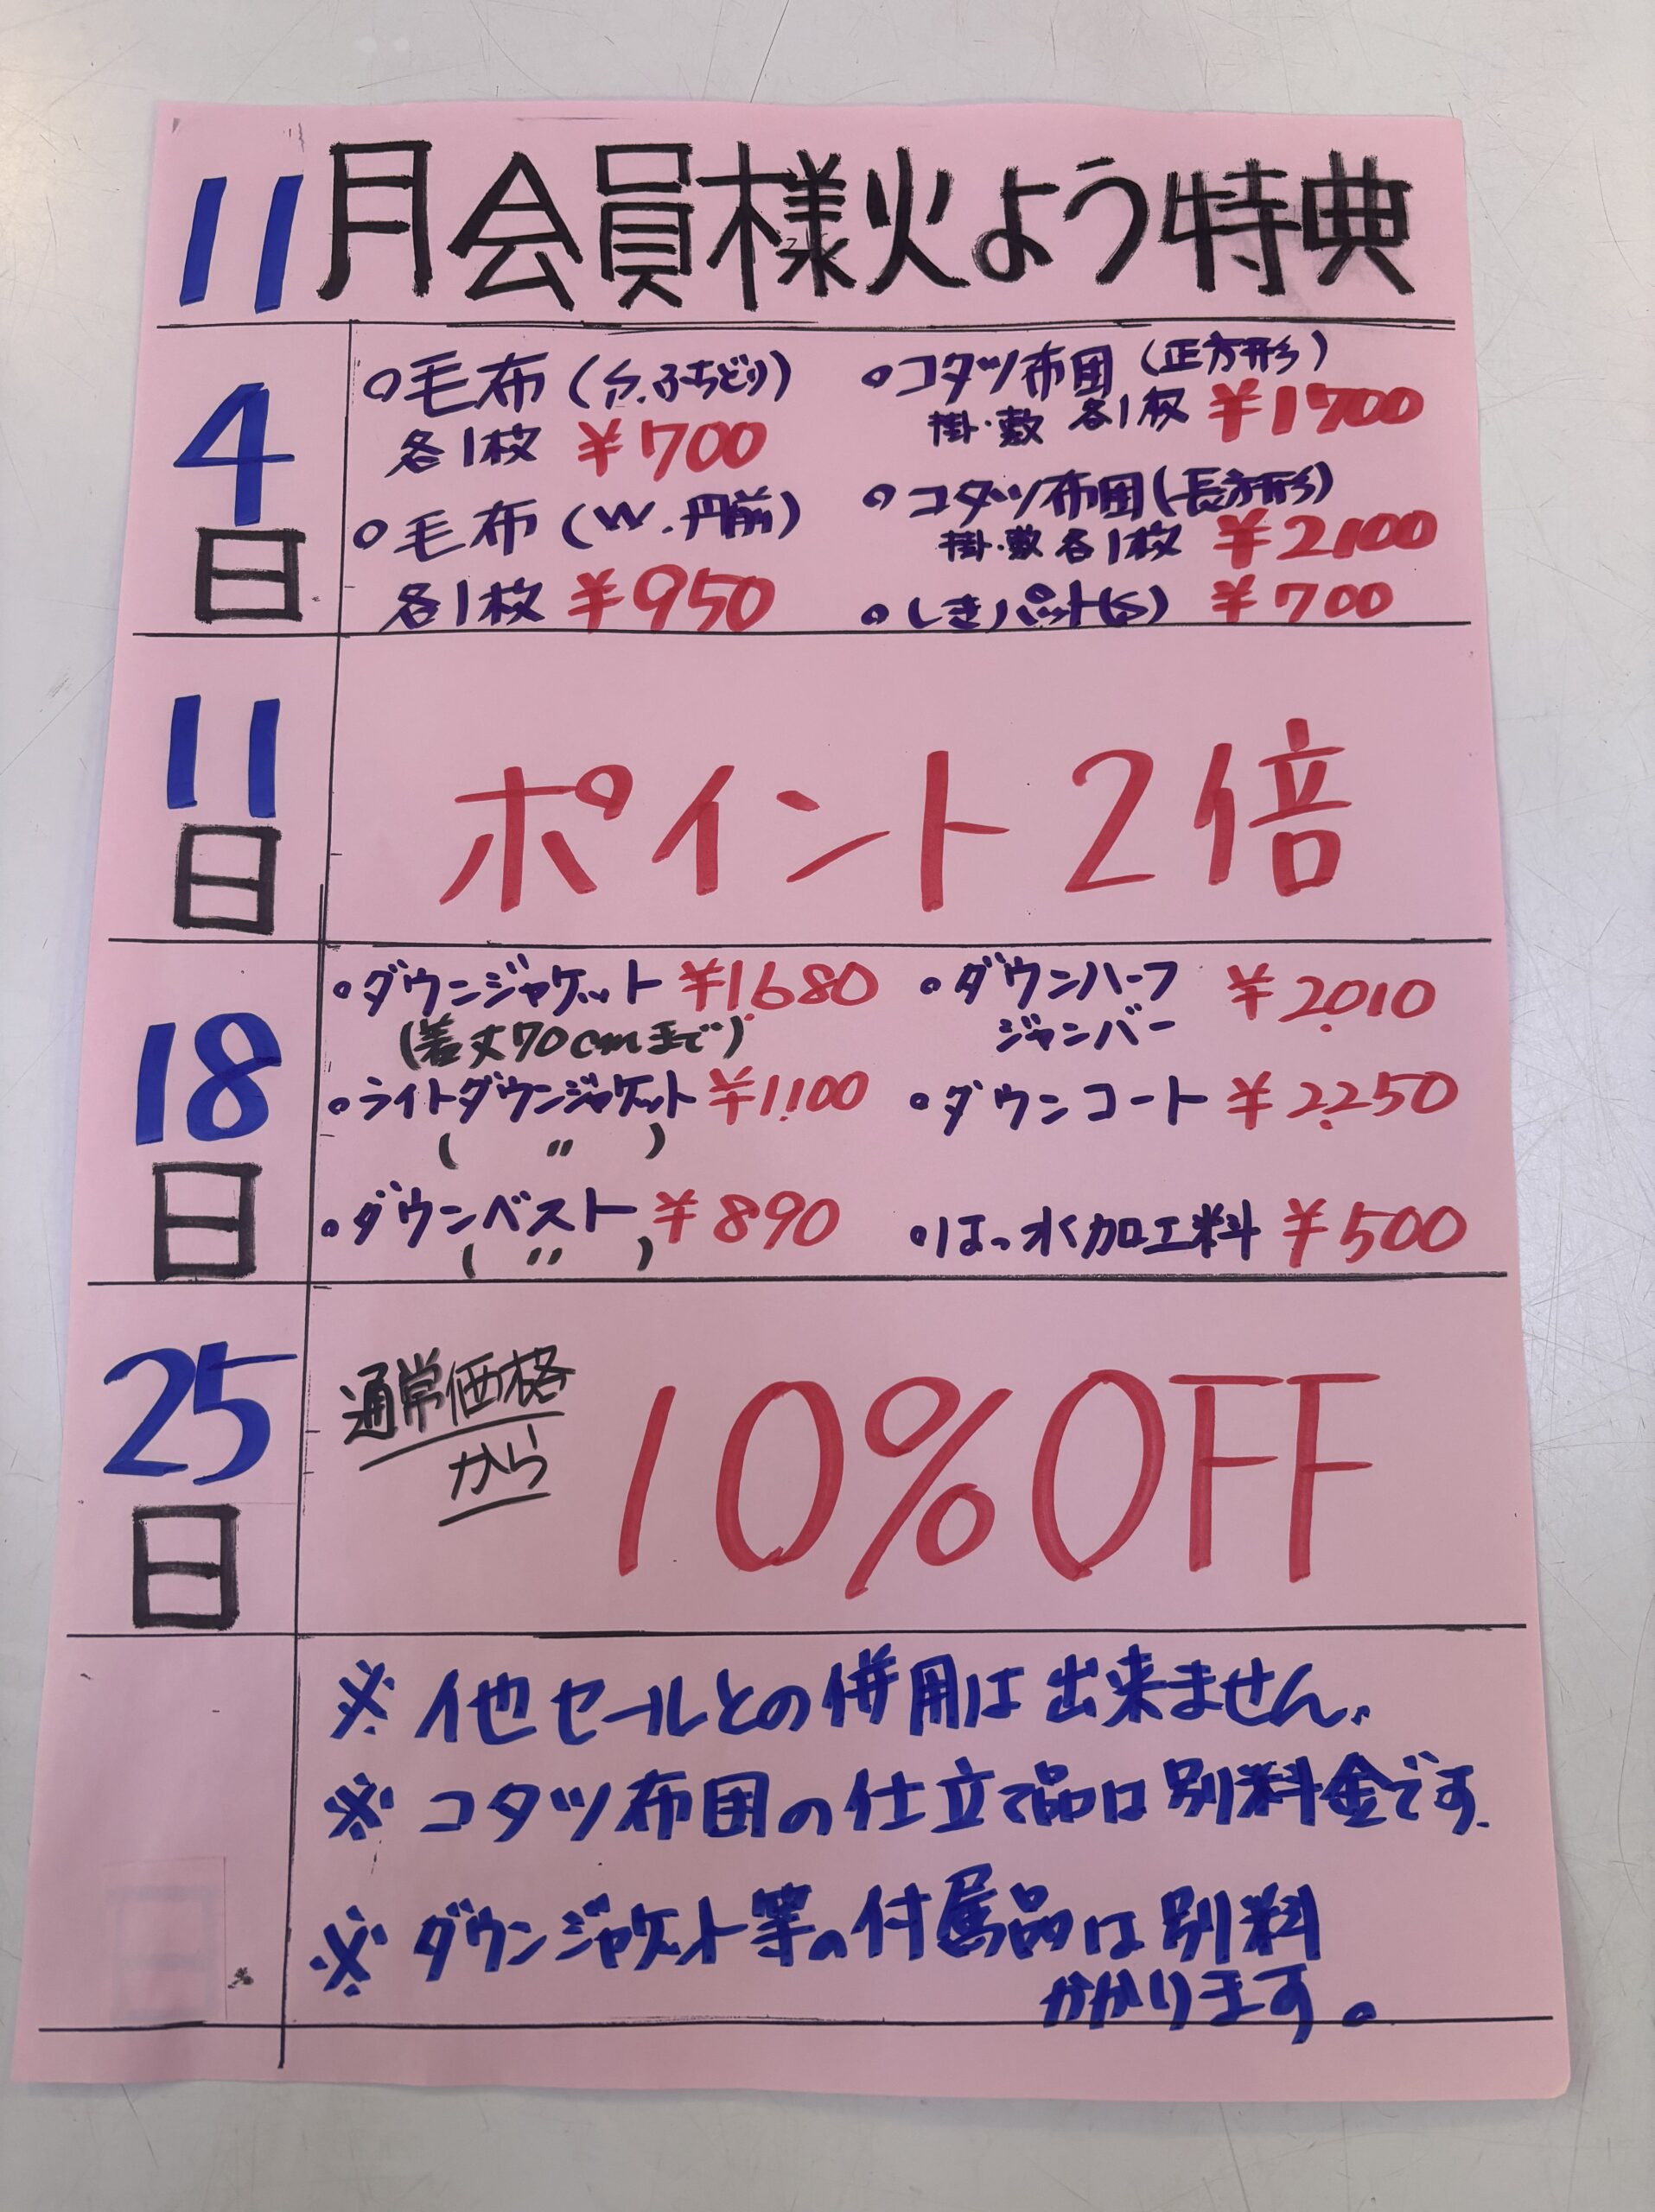 11月会員様火よう特典
4日
○毛布(S.ふちどり)
各1枚 ¥700
○毛布(W.丹前)
各1枚 ¥950
○コタツ布団(正方形)
掛・敷 各1枚 ¥1700
○コタツ布団(長方形)
掛・敷 各1枚 ¥2100
○しきパット(S) ¥700
11日
ポイント2倍
18日
○ダウンジャケット ¥1.680
(着丈70cmまで)
○ライトダウンジャケット ¥1.100
( 〃 )
○ダウンベスト ¥890
( 〃 )
○ダウンハーフ ¥2.010
ジャンバー
○ダウンコート ¥2.250
○はっ水加工料 ¥500
25日
通常価格
から
10%OFF
※他セールとの併用は出来ません。
※コタツ布団の仕立て品は別料金です.
※ダウンジャケット等の付属品は別料
かかります。